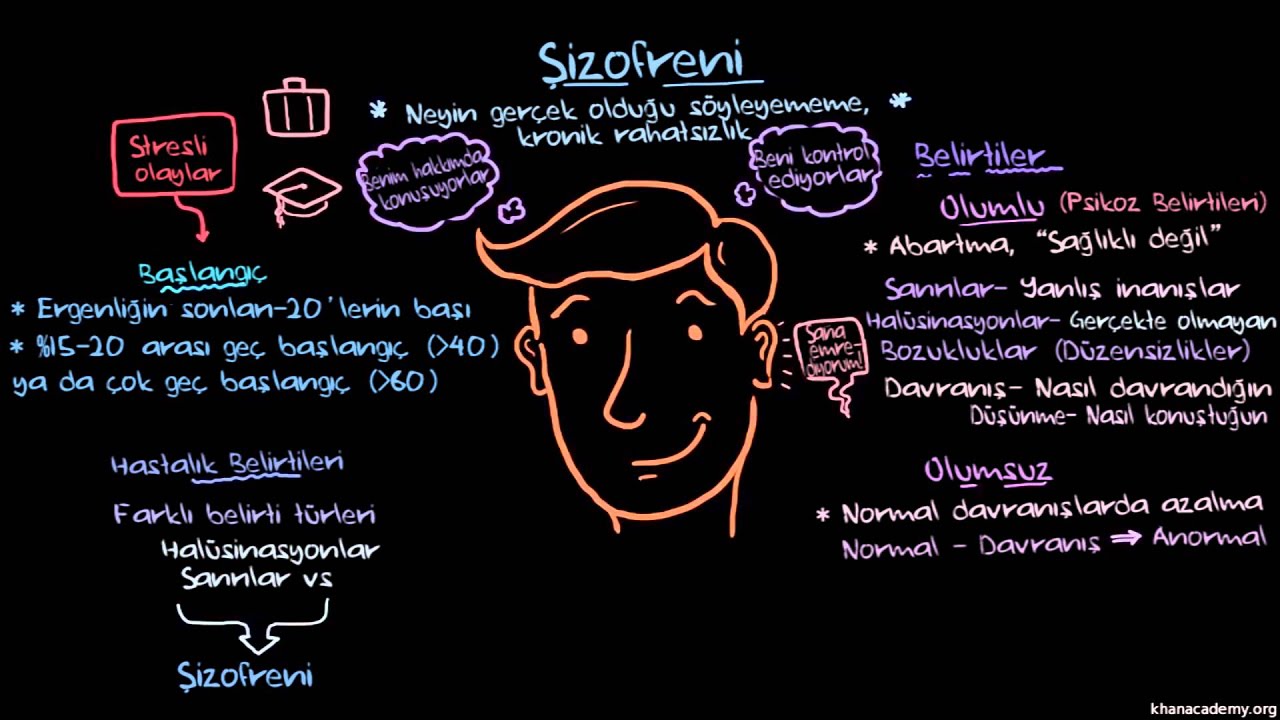 Şizofreni
* Neyin gerçek olduğu söyleyememe, *
kronik rahatsızlık
Stresli
olaylar
Benim hakkımda
konuşuyorlar
Beni kontrol
ediyorlar
Başlangıç
* Ergenliğin sonları-20'lerin başı
* %15-20 arası geç başlangıç (>40)
ya da çok geç başlangıç (>60)
Hastalık Belirtileri
Farklı belirti türleri
Halüsinasyonlar
Sanrılar vs
Şizofreni
Sana
emre-
diyorum!
Belirtiler
Olumlu (Psikoz Belirtileri)
* Abartma, "Sağlıklı değil"
Sanrılar- Yanlış inanışlar
Halüsinasyonlar- Gerçekte olmayan
Bozukluklar (Düzensizlikler)
Davranış- Nasıl davrandığın
Düşünme- Nasıl konuştuğun
Olumsuz
* Normal davranışlarda azalma
Normal - Davranış ⇒ Anormal
khanacademy.org